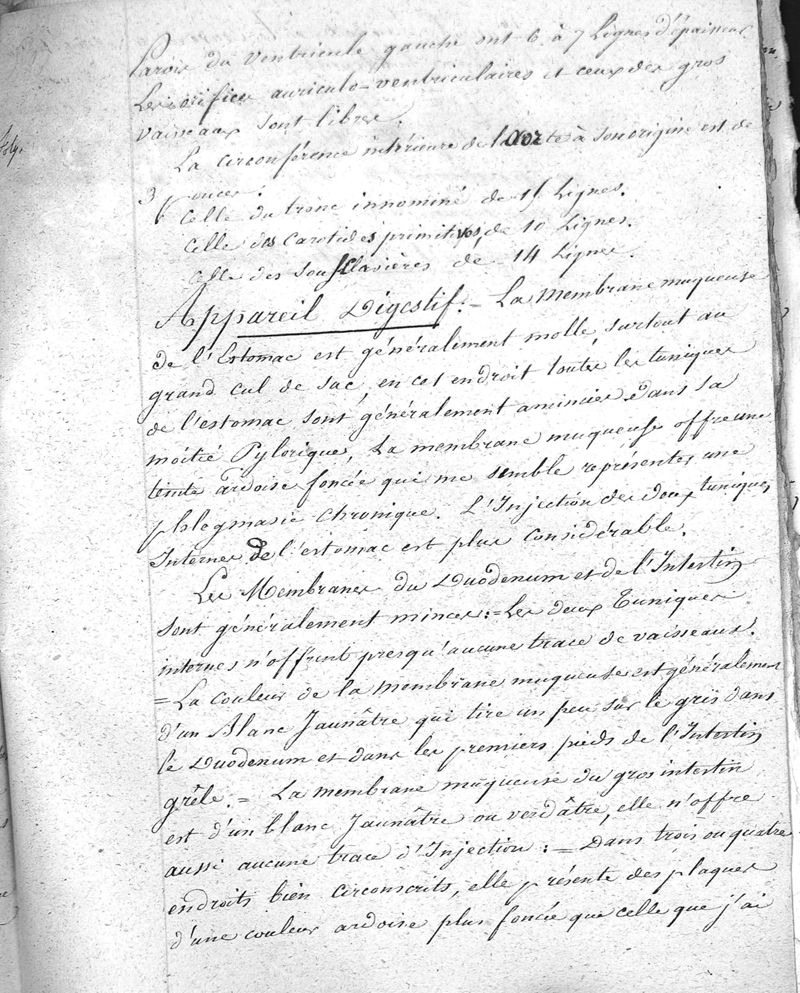 Parois du Ventricule gauche ont 6 à 7 Lignes d'épaisseur
Les orifices auriculo-ventriculaires et ceux des gros
vaisseaux sont libres.
La circonférence intérieure de l'aorte à son origine est de
3 pouces.
Celle du tronc innominé de 15 Lignes.
Celle des Carotides primitives, de 10 Lignes.
Celle des Sousclavières de 14 Lignes.
Appareil Digestif. = La Membrane muqueuse
de l'Estomac est généralement molle, surtout au
grand cul de sac, en cet endroit toutes les tuniques
de l'estomac sont généralement amincies Dans sa
moitié Pylorique, La membrane muqueuse offre une
teinte ardoise foncée qui me semble représenter une
phlegmasie Chronique. L'Injection des deux tuniques
Internes de l'estomac est plus considérable.
Les Membranes du Duodenum et de l'Intestin
sont généralement minces: = Les deux Tuniques
internes n'offrent presqu'aucune trace de vaisseaux.
= La couleur de la membrane muqueuse est généralement
d'un Blanc Jaunâtre qui tire un peu sur le gris dans
le Duodenum et dans les premiers pieds de l'Intestin
grêle. = La membrane muqueuse du gros intestin
est d'un blanc Jaunâtre ou verdâtre, elle n'offre
aussi aucune trace d'Injection: = Dans trois ou quatre
endroits bien circonscrits, elle présente des plaques
d'une couleur ardoise plus foncée que celle que j'ai